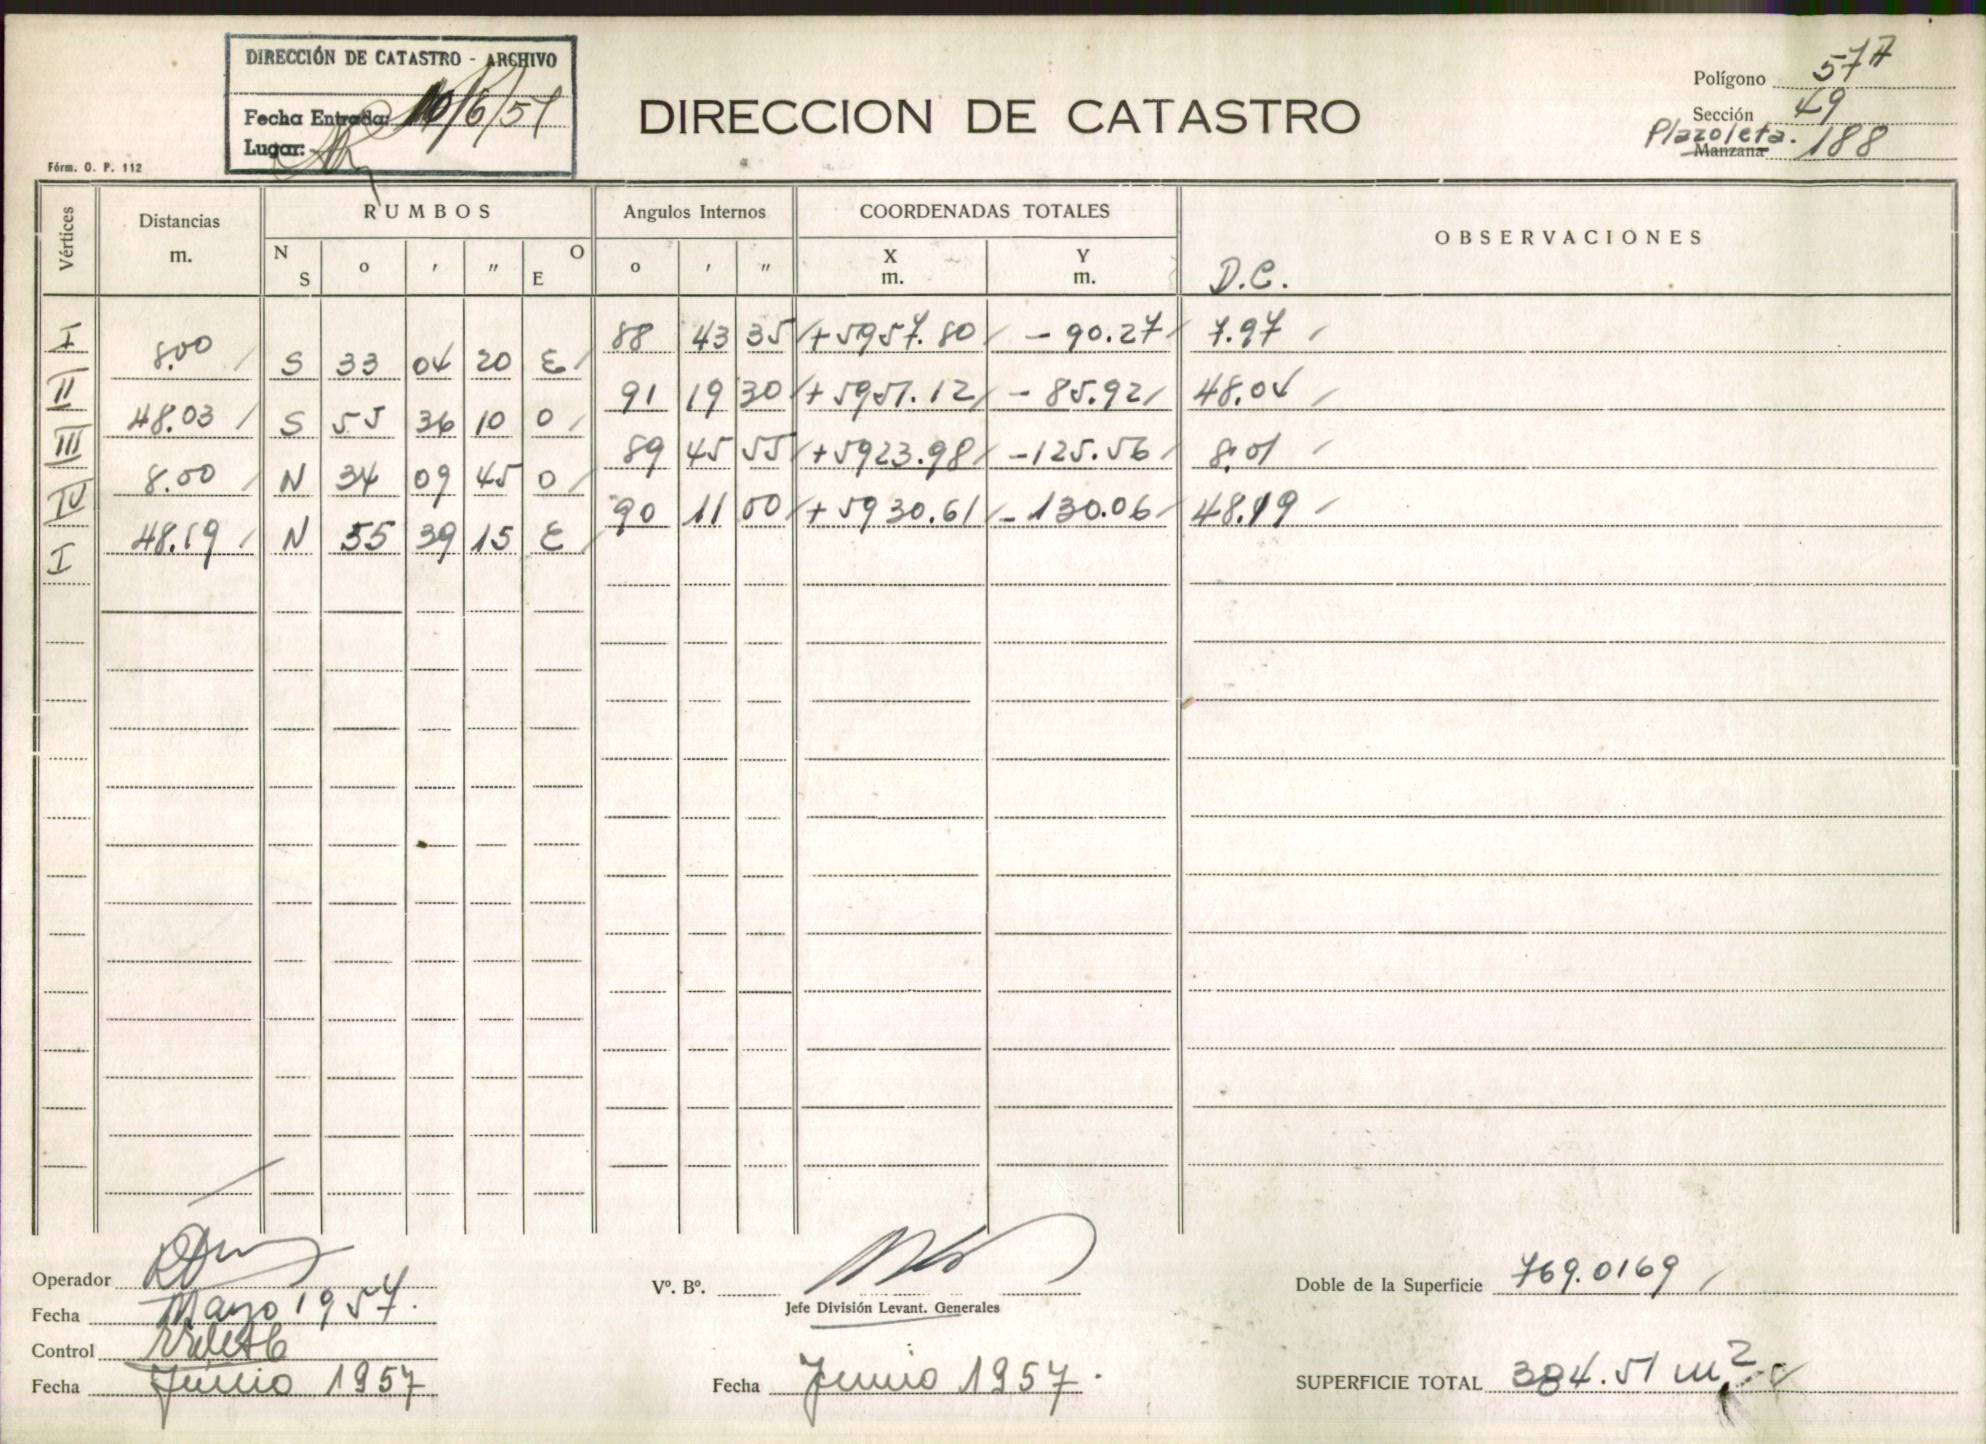 DIRECCIÓN DE CATASTRO - ARCHIVO
Fecha Entrada: 10/6/57
Lugar:
Fórm. O. P. 112
DIRECCION DE CATASTRO
Polígono 57A
Sección 49
Plazoleta. Manzana 188
Vértices
Distancias
m.
RUMBOS
N S ° ' " O E
Angulos Internos
° ' "
COORDENADAS TOTALES
X
m.
Y
m.
OBSERVACIONES
D.C.
I 88 43 35 +5957.80 -90.27 7.97
8.00 S 33 04 20 E
II 91 19 30 +5951.12 -85.92 48.04
48.03 S 55 36 10 O
III 89 45 55 +5923.98 -125.56 8.01
8.00 N 34 09 45 O
IV 90 11 00 +5930.61 -130.06 48.19
48.19 N 55 39 15 E
I
Operador
Fecha Mayo 1957.
Control
Fecha Junio 1957
Vº. Bº.
Jefe División Levant. Generales
Fecha Junio 1957.
Doble de la Superficie 769.0169
SUPERFICIE TOTAL 384.51 m2